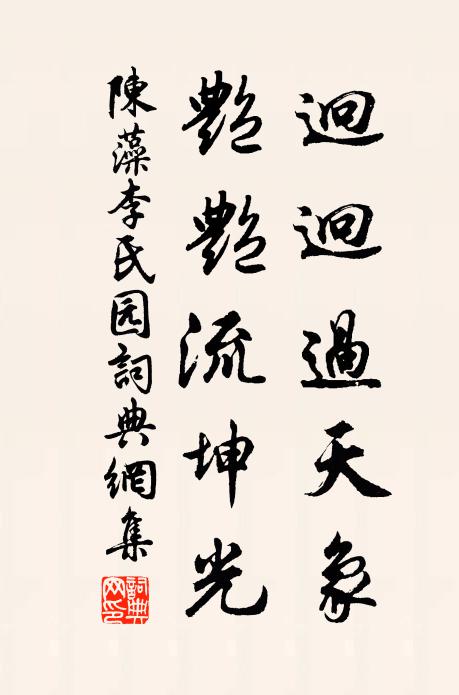 迥迥過天象
艷艷流坤光
陳藻李氏园詞典網集
詞典网印